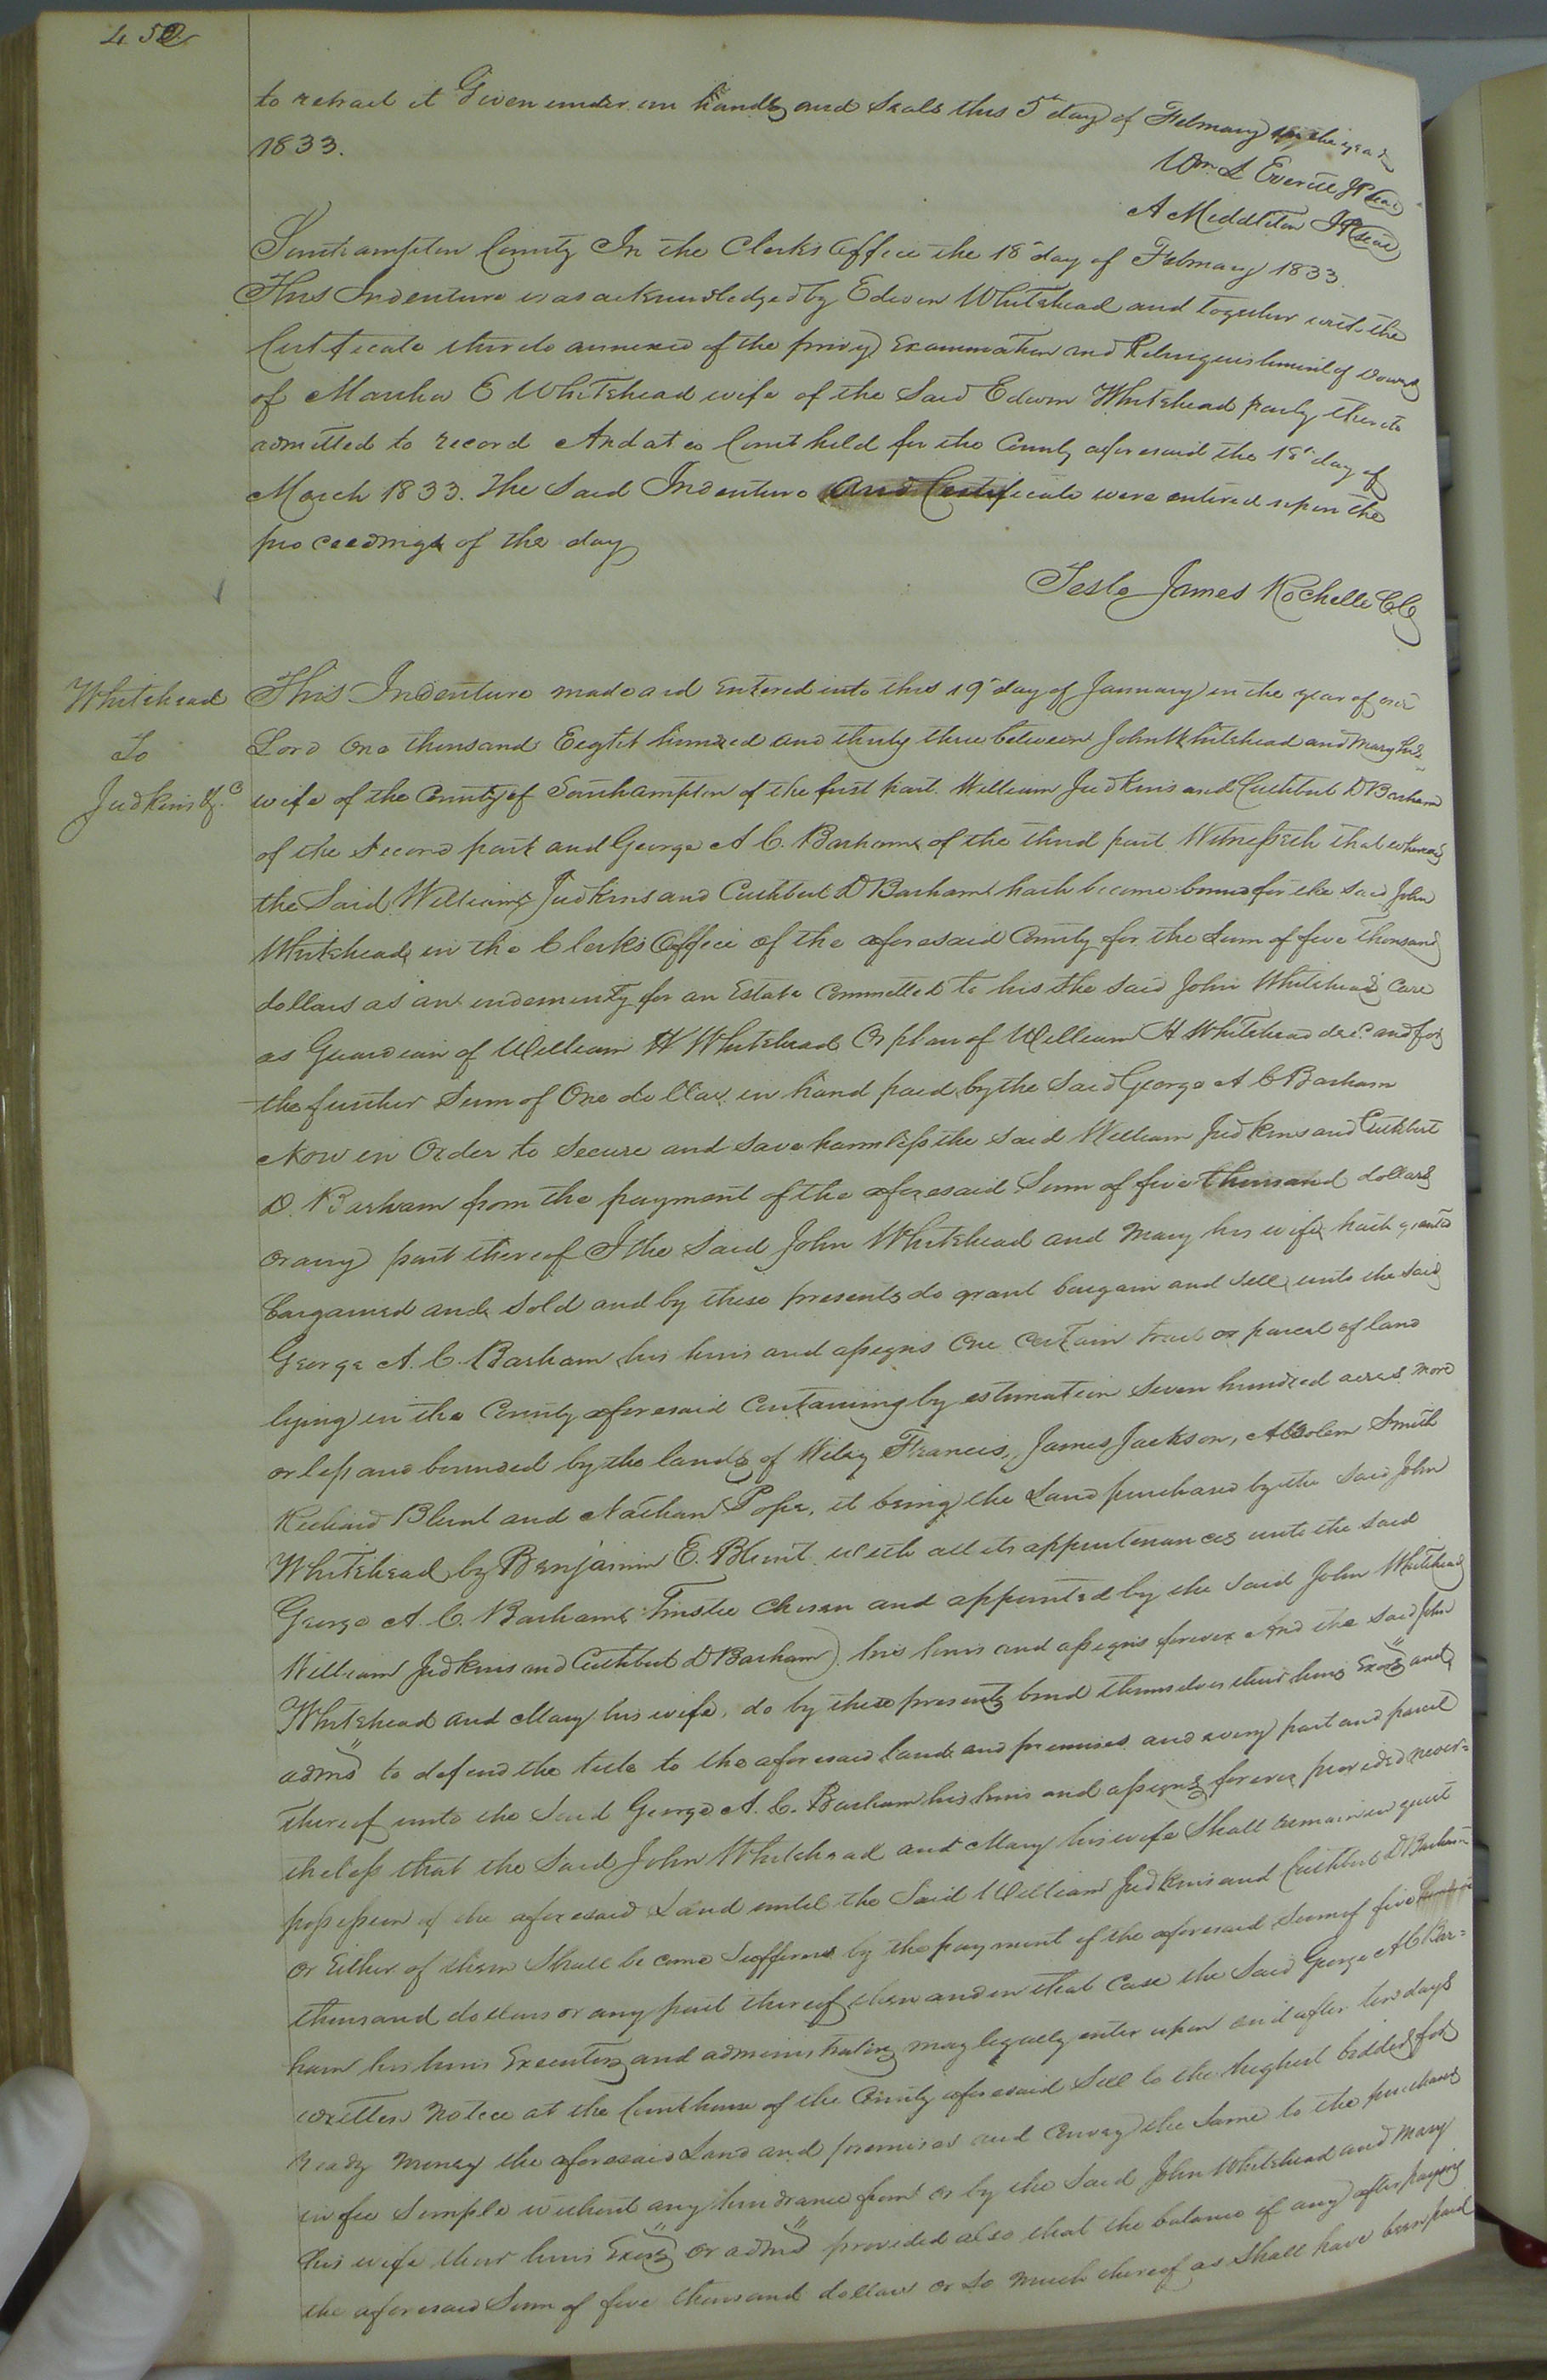 452
to retract it Given under our hands and Seals this 5th day of February in the year
1833.
Wm. L Everitt JP Seal
A Middleton JP Seal
Southampton County In the Clerks Office the 18th day of February 1833.
This Indenture was acknowledged by Edwin Whitehead and together with the
Certificate thereto annexed of the privy Examination and Relinquishment of Dower
of Martha E Whitehead wife of the Said Edwin Whitehead party thereto
admitted to record And at a Court held for the County aforesaid the 18th day of
March 1833. The Said Indenture and Certificate were entered upon the
proceedings of the day
Teste James Rochelle C.C
Whitehead
To
Judkins &c
This Indenture made and Entered into this 19th day of January in the year of our
Lord One thousand Eeght hundred and thirty three between John Whitehead and Mary his
wife of the County of Southampton of the first part. William Judkins and Cuthbut D Barham
of the Second part and George A C. Barham of the third part Witnesseth that whereas
the Said William Judkins and Cuthbut D Barham hath become bound for the said John
Whitehead in the Clerks Office of the aforesaid County for the Sum of five thousand
dollars as an indemnity for an Estate Committed to his the Said John Whiteheads Care
as Guardian of William H Whitehead Orphan of William H Whitehead decd. and for
the further Sum of One dollar in hand paid by the Said George A C Barham
Now in Order to Secure and Save harmless the Said William Judkins and Cuthbut
D. Barham from the payment of the aforesaid Sum of five thousand dollars
or any part thereof I the Said John Whitehead and Mary his wife, hath granted
bargained and Sold and by these presents do grant bargain and Sell unto the Said
George A. C. Barham his heirs and assigns One certain tract or parcel of land
lying in the County aforesaid Containing by estimation Seven hundred acres more
or less and bounded by the lands of Wiley Francis, James Jackson, Absolem Smith
Richard Blunt and Nathan Pope, it being the Land purchased by the Said John
Whitehead by Benjamin E. Blunt. with all its appurtenances unto the said
George A. C. Barham Trustee Chosen and appointed by the Said John Whitehead
William Judkins and Cuthbut D Barham) his heirs and assigns forever And the Said John
Whitehead and Mary his wife, do by these presents bind themselves their heirs Exors and
adms to defend the title to the aforesaid land and premises and every part and parcel
thereof unto the Said George A. C. Barham his heirs and assigns forever provided never=
theless that the Said John Whitehead and Mary his wife Shall remain in quiet
possession of the aforesaid Land until the Said William Judkins and Cuthbut D Barham
or Either of them Shall become Sufferers by the payment of the aforesaid Sum of five
thousand dollars or any part thereof then and in that Case the Said George A C Bar=
ham his heirs Executors and administrators may legally enter upon and after ten days
written Notice at the Courthouse of the County aforesaid Sell to the highest bidder for
Ready Money the aforesaid Land and premises and Convey the Same to the purchaser
in fee Simple without any hindrance from or by the Said John Whitehead and Mary
his wife their heirs Exors or adms provided also that the balance if any after paying
the aforesaid Sum of five thousand dollars or So much thereof as Shall have been paid